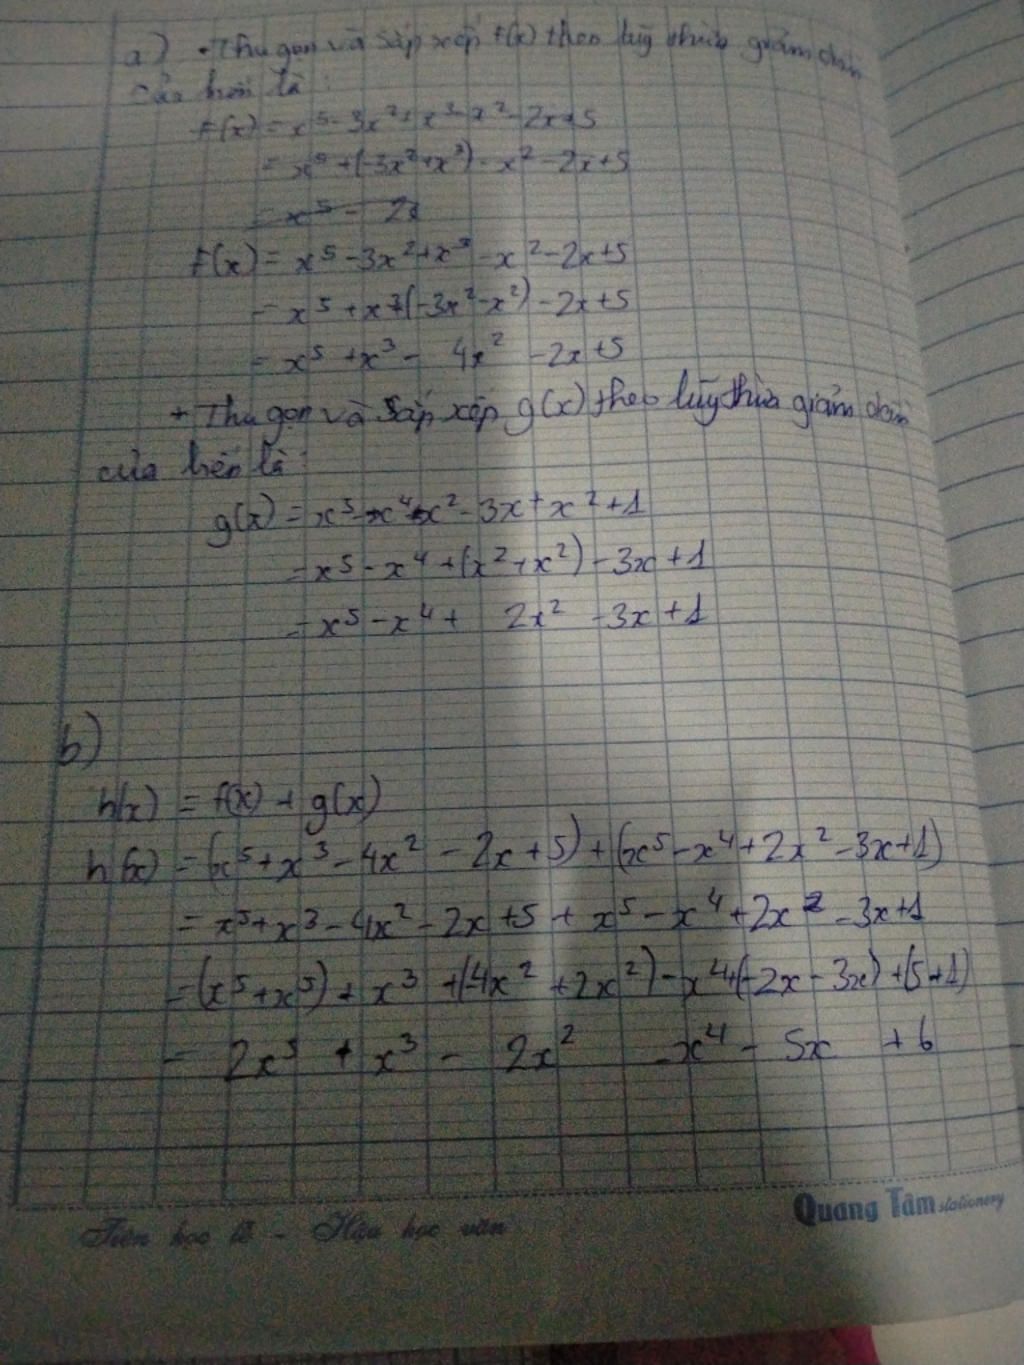 a) • Thu gọn và sắp xếp f(x) theo lũy thừa giảm dần
của biến là :
F(x) = x⁵ - 3x² + x³ - x² - 2x + 5
= x⁵ + (-3x² + x³) - x² - 2x + 5
= x⁵ - 2x
F(x) = x⁵ - 3x² + x³ - x² - 2x + 5
= x⁵ + x³ + (-3x² - x²) - 2x + 5
= x⁵ + x³ - 4x² - 2x + 5
+ Thu gọn và sắp xếp g(x) theo lũy thừa giảm dần
của biến là :
g(x) = x⁵ - x⁴ + x² - 3x + x² + 1
= x⁵ - x⁴ + (x² + x²) - 3x + 1
= x⁵ - x⁴ + 2x² - 3x + 1
b)
h(x) = f(x) + g(x)
h(x) = (x⁵ + x³ - 4x² - 2x + 5) + (x⁵ - x⁴ + 2x² - 3x + 1)
= x⁵ + x³ - 4x² - 2x + 5 + x⁵ - x⁴ + 2x² - 3x + 1
= (x⁵ + x⁵) + x³ + (-4x² + 2x²) - x⁴ + (-2x - 3x) + (5 + 1)
= 2x⁵ + x³ - 2x² - x⁴ - 5x + 6
Quang Tâm stationery
Tiên học lễ - Hậu học văn